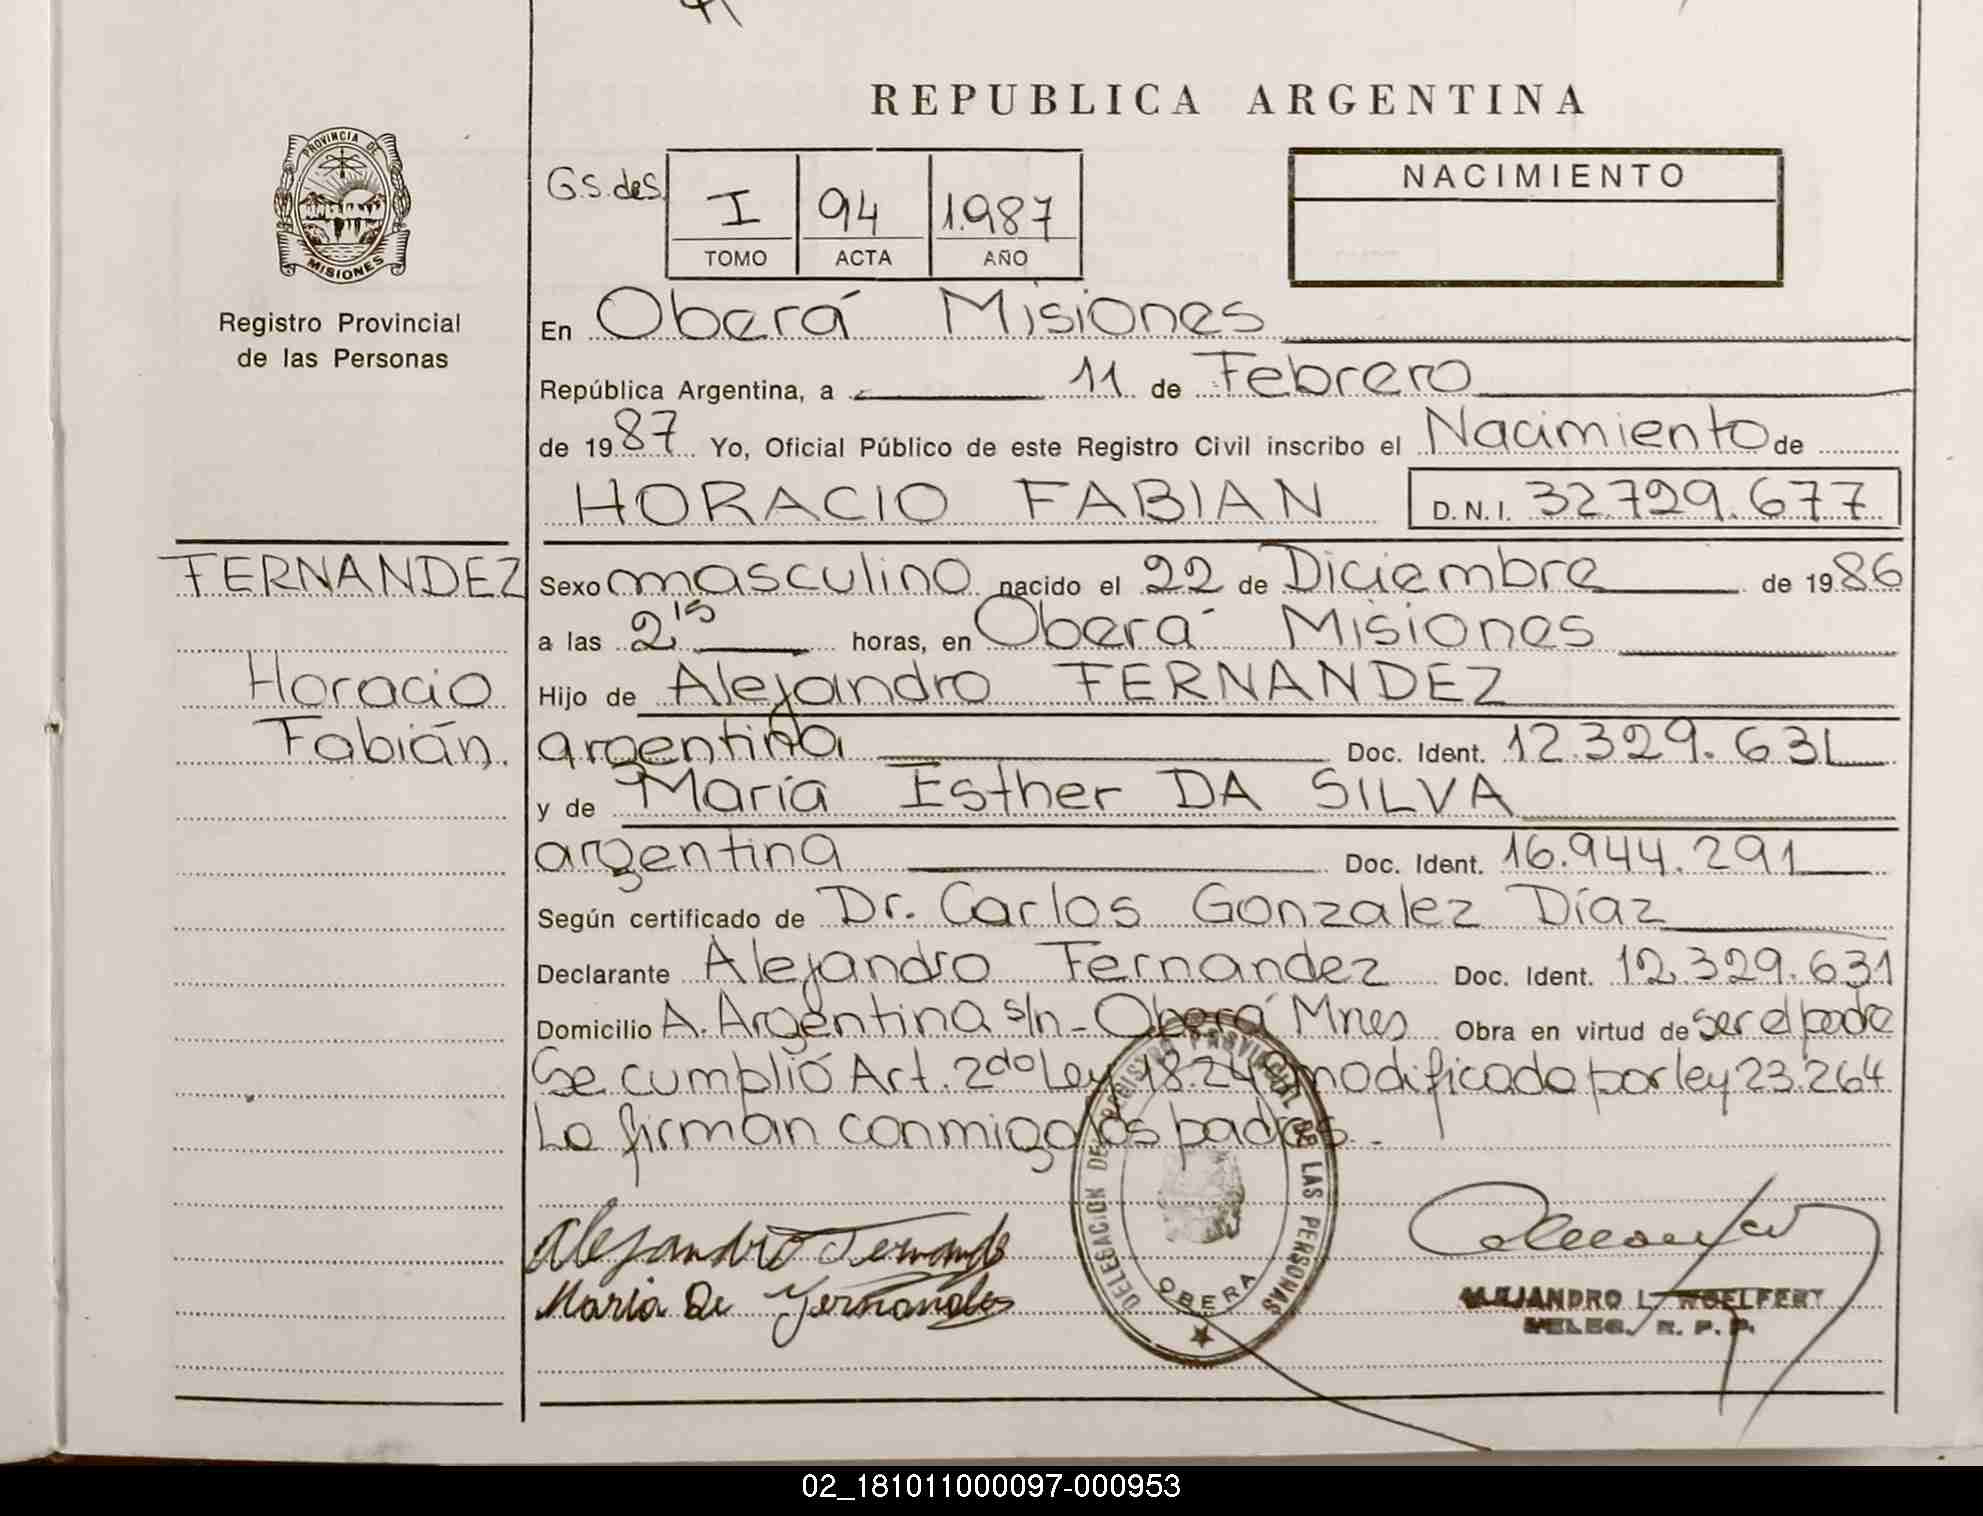 REPUBLICA ARGENTINA
PROVINCIA DE
MISIONES
Registro Provincial
de las Personas
G.S. des.
I 94 1.987
TOMO ACTA AÑO
NACIMIENTO
En Oberá Misiones
República Argentina, a 11 de Febrero
de 1987 Yo, Oficial Público de este Registro Civil inscribo el Nacimiento de
HORACIO FABIAN D.N.I. 32.729.677
FERNANDEZ
Horacio
Fabián.
Sexo masculino nacido el 22 de Diciembre de 1986
a las 2,15 horas, en Oberá Misiones
Hijo de Alejandro FERNANDEZ
argentina Doc. Ident. 12.329.631
y de María Esther DA SILVA
argentina Doc. Ident. 16.944.291
Según certificado de Dr. Carlos Gonzalez Díaz
Declarante Alejandro Fernandez Doc. Ident. 12.329.631
Domicilio A. Argentina s/n - Oberá Mnes Obra en virtud de ser el padre
Se cumplió Art. 2do Ley 18.249 modificado por ley 23.264
Lo firman conmigo los padres.-
Alejandro Fernande
Maria De Fernandes
DELEGACION DEL REGISTRO PROVINCIAL DE LAS PERSONAS
OBERA
ALEJANDRO L. WOELFERT
DELEG. R. P. P.
02_181011000097-000953